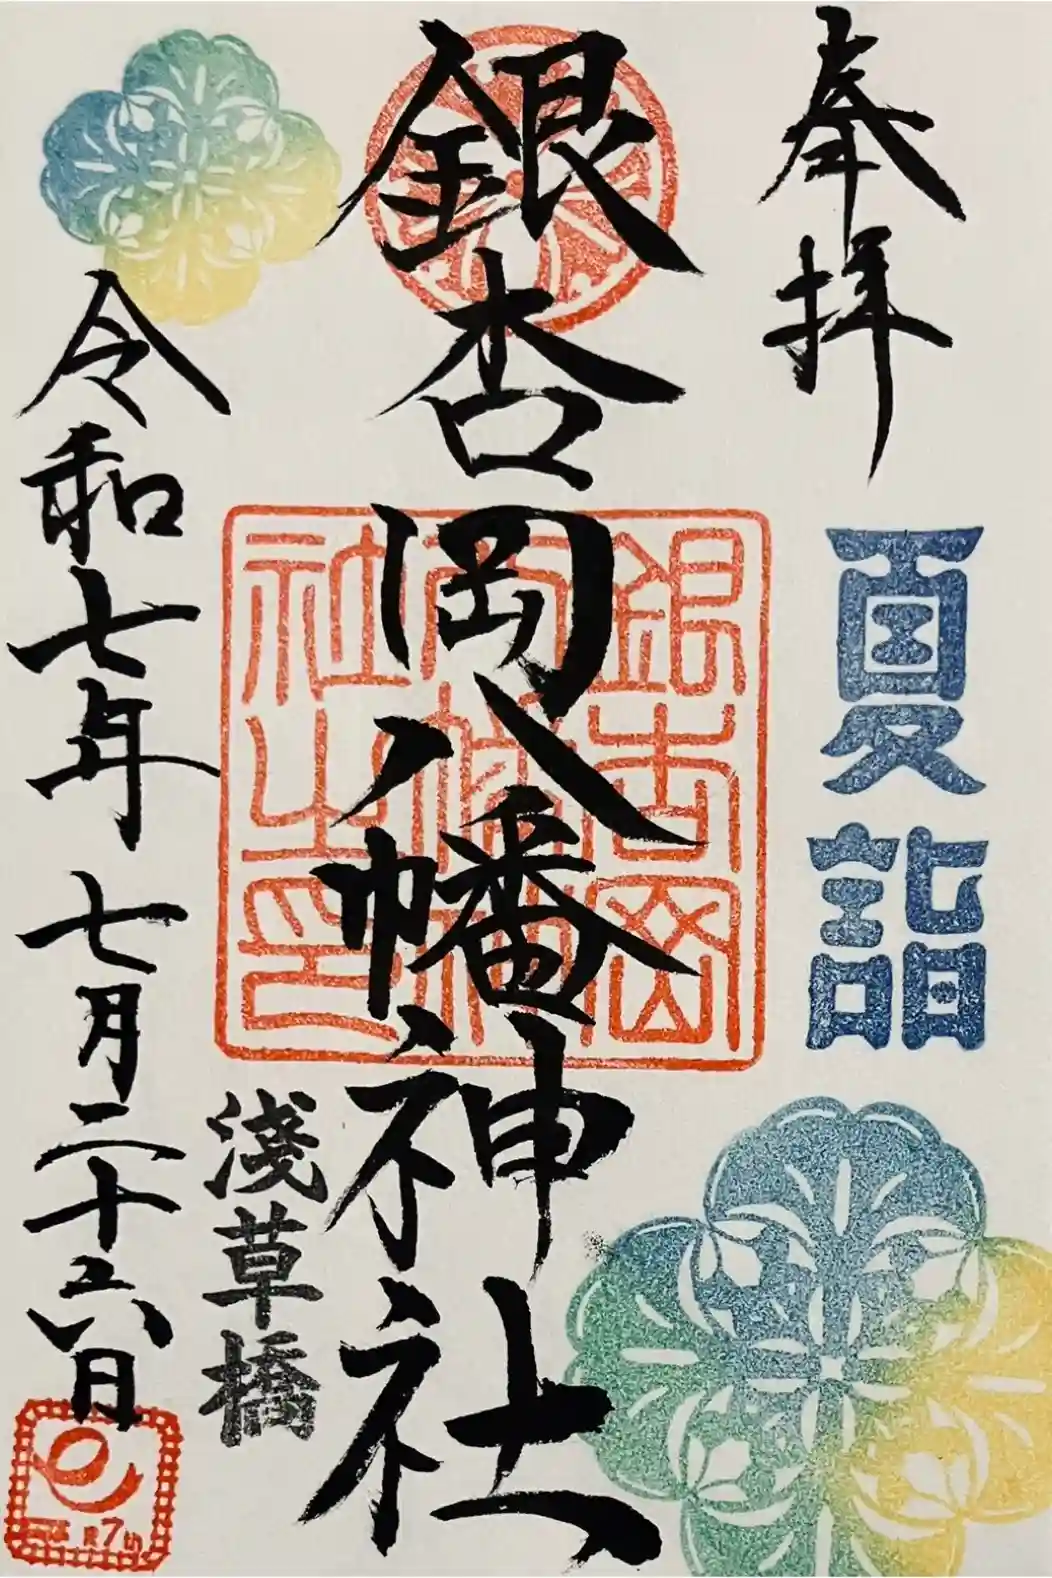 奉拝
夏詣
銀杏岡八幡神社
銀杏岡八幡神社之印
浅草橋
令和七年七月二十六日
7th